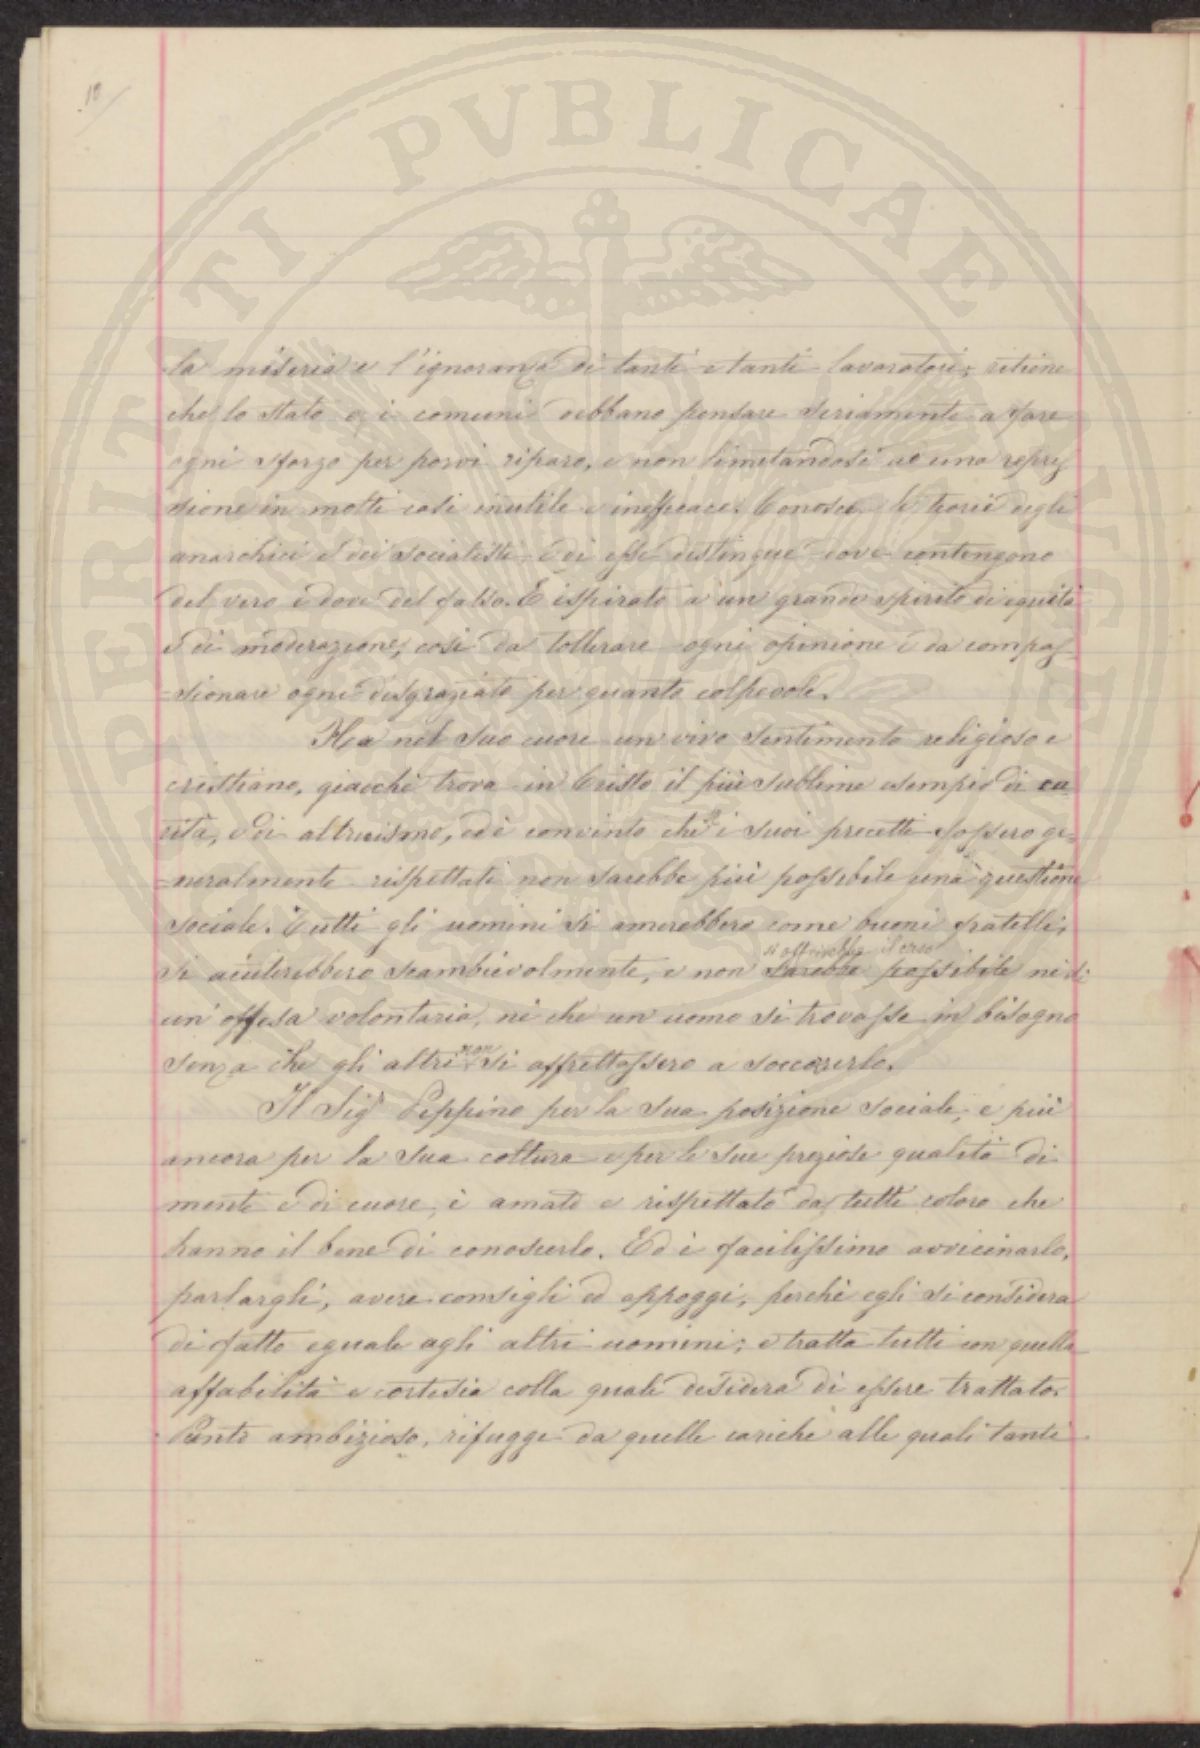 10/
la miseria e l'ignoranza di tanti e tanti lavoratori; ritiene
che lo Stato e i comuni debbano pensare seriamente a fare
ogni sforzo per porvi riparo, e non limitandosi ad una repres
sione in molti casi inutile e inefficace. Conosce le teorie degli
anarchici e dei socialisti e di esse distingue dove contengono
del vero e dove del falso. È ispirato a un grande spirito di equità
e di moderazione, così da tollerare ogni opinione e da compas-
=sionare ogni disgraziato per quanto colpevole.
Ha nel suo cuore un vivo sentimento religioso e
cristiano, giacchè trova in Cristo il più sublime esempio di ca
rità, e di altruismo, ed è convinto che i suoi precetti fossero ge=
=neralmente rispettati non sarebbe più possibile una questione
sociale. Tutti gli uomini si amerebbero come buoni fratelli,
si offrirebbe il caso
si aiuterebbero scambievolmente, e non sarebbe possibile nè di
un'offesa volontaria, nè che un uomo si trovasse in bisogno
non
senza che gli altri si affrettassero a soccorrerlo.
Il Sigr Peppino per la sua posizione sociale, e più
ancora per la sua coltura e per le sue preziose qualità di
mente e di cuore, è amato e rispettato da tutti coloro che
hanno il bene di conoscerlo. Ed è facilissimo avvicinarlo,
parlargli, avere consigli ed appoggi, perchè egli si considera
di fatto eguale agli altri uomini; e tratta tutti con quella
affabilità e cortesia colla quale desidera di essere trattato.
Punto ambizioso, rifugge da quelle cariche alle quali tanti
PERITATI PVBLICAE